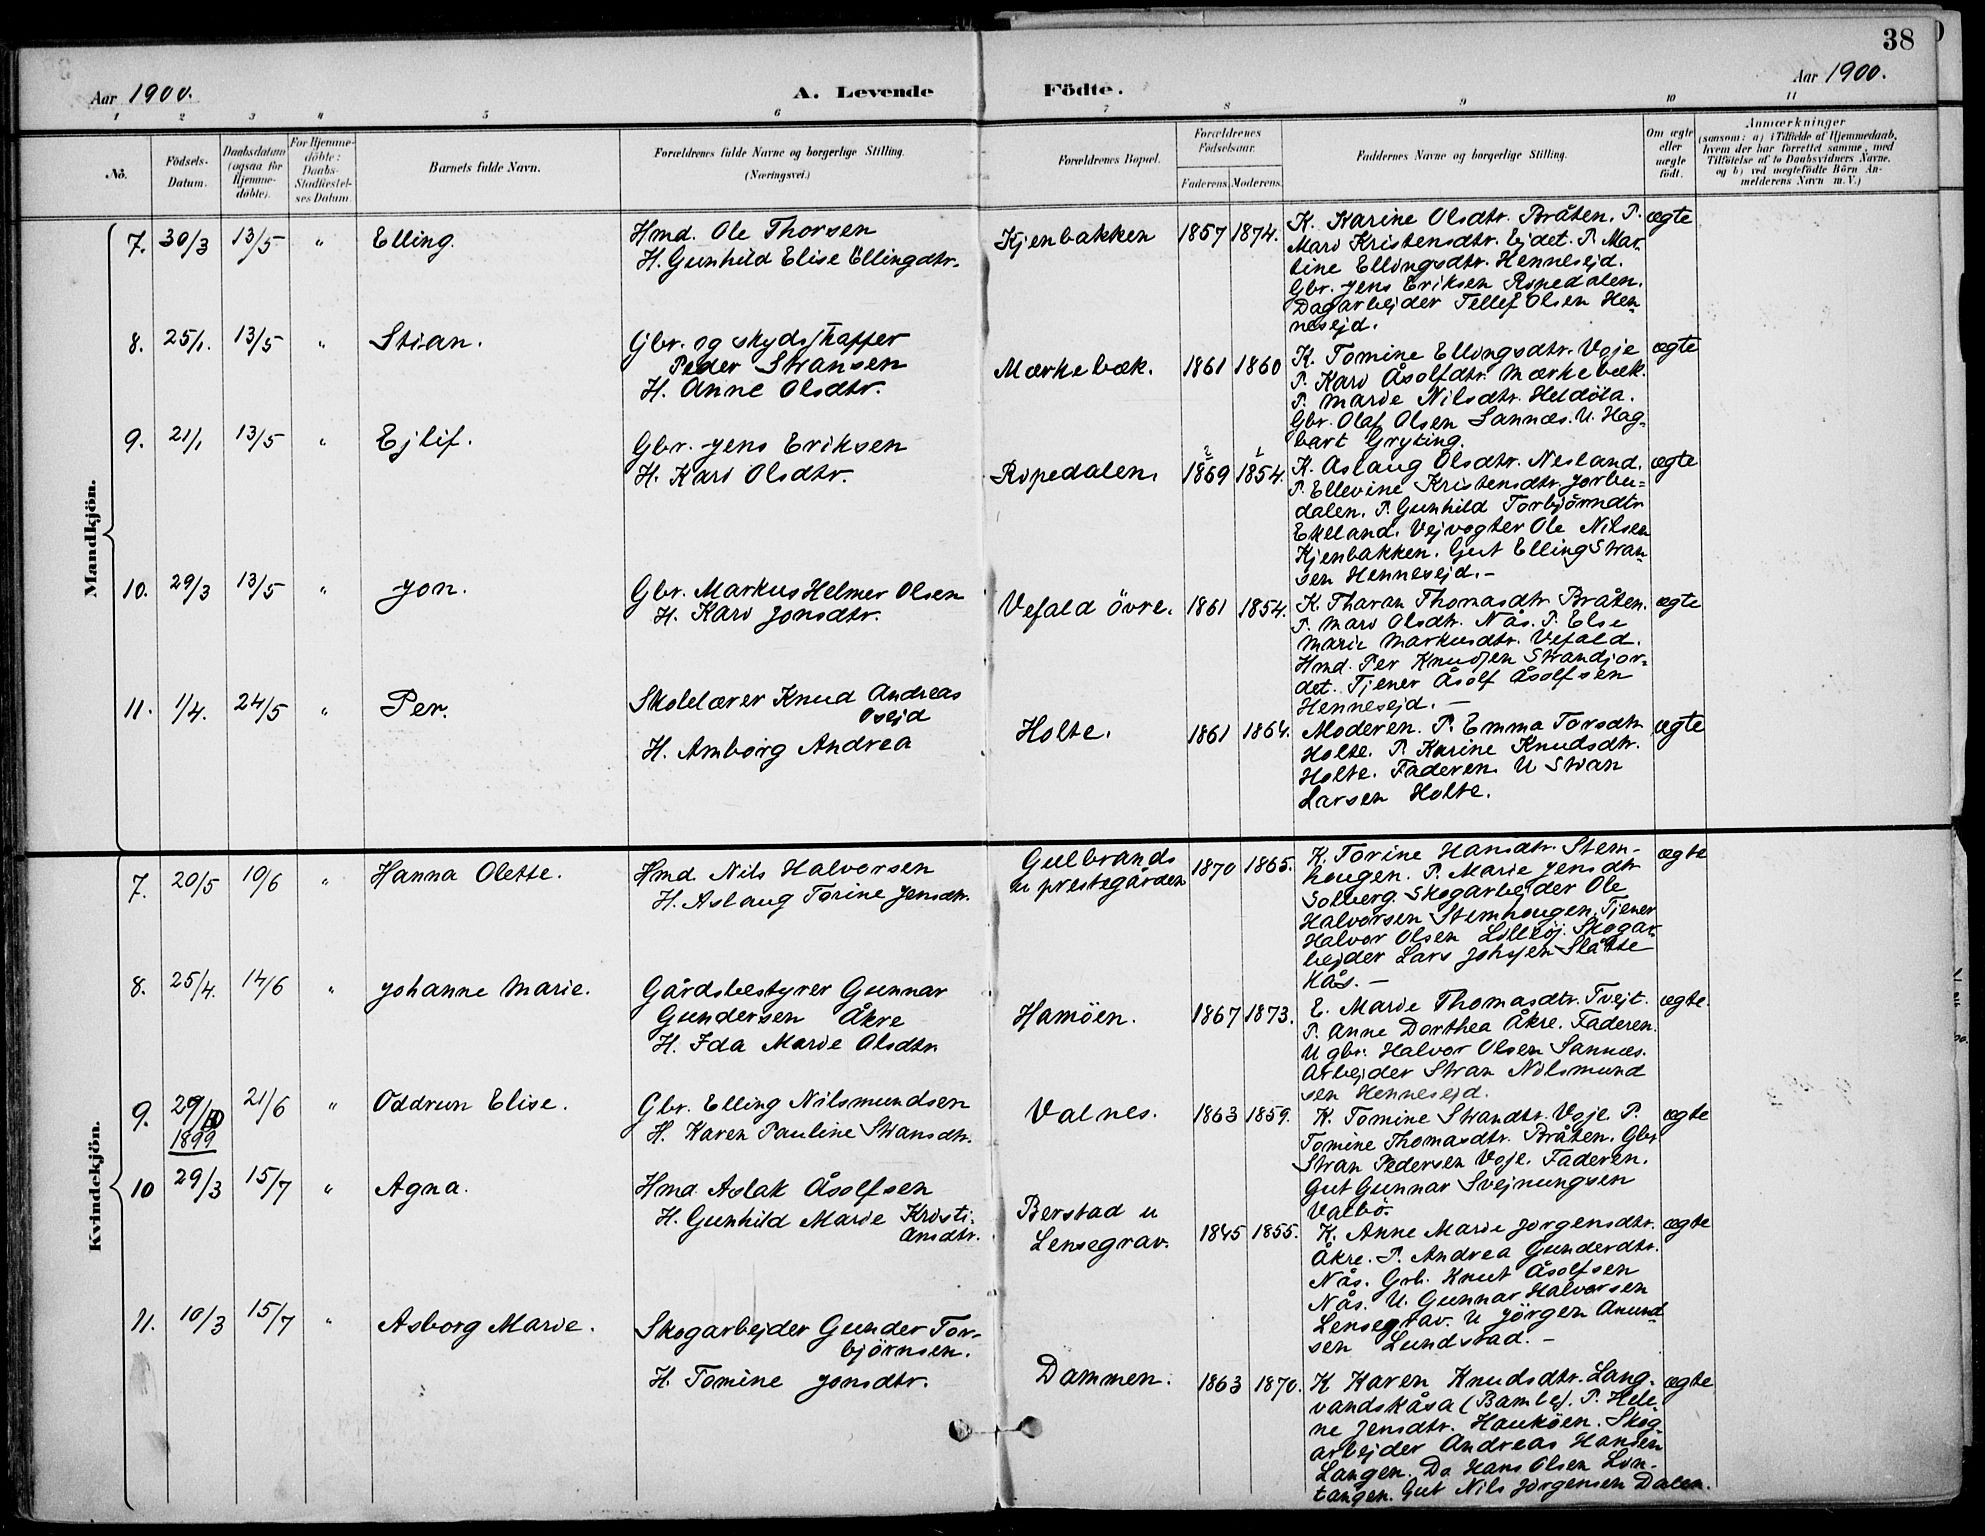 38
Aar 1900.
A. Levende Födte.
Aar 1900.
1 2 3 4 5 6 7 8 9 10 11
No.
Födsels-
Datum.
Daabsdatum
(ogsaa for
Hjemme-
döbte).
For Hjemme-
döbte:
Daabs-
Stadfæstel-
ses Datum
Barnets fulde Navn.
Forældrenes fulde Navne og borgerlige Stilling.
(Næringsvei.)
Forældrenes Bopæl.
Forældrenes
Födselsaar.
Faderens. Moderens.
Faddernes Navne og borgerlige Stilling.
Om ægte
eller
uægte
födt.
Anmærkninger
(saasom: a) i Tilfælde af Hjemmedaab,
hvem der har forrettet samme, med
Tilföielse af to Daabsvidners Navne.
og b) ved uægtefödte Börn An-
melderens Navn m. V.)
Mandkjön.
7. 30/3 13/5 " Elling.
Hmd. Ole Thorsen
H. Gunhild Elise Ellingdtr.
Kjenbakken 1857 1874.
K. Karine Olsdtr. Bråten. P.
Mari Kristensdtr. Ejdet. P. Mar-
tine Ellingsdtr. Hennesejd.
Gbr. Jens Eriksen Ripedalen.
Dagarbejder Tellef Olsen Hen-
nesejd.
ægte
8. 25/1. 13/5 " Stian.
Gbr. og skydsskaffer
Peder Stiansen
H. Anne Olsdtr.
Mærkebæk. 1861 1860
K. Tomine Ellingsdtr. Voje
P. Kari Åsolfdtr. Mærkebæk.
P. Marie Nilsdtr. Heldöla.
Gbr. Olaf Olsen Sannæs. U. Hag-
bart Gryting.
ægte
9. 21/1 13/5 " Ejlif.
Gbr. Jens Eriksen
H. Kari Olsdtr.
Ripedalen. 1869 1854.
K. Aslaug Olsdtr. Nesland.
P. Ellevine Kristensdtr. Jorbu-
dalen. P. Gunhild Torbjörndtr
Ekeland. Vejvogter Ole Nilsen
Kjenbakken. Gut Elling Stian-
sen Hennesejd.-
ægte
10. 29/3 13/5 " Jon.
Gbr. Markus Helmer Olsen
H. Kari Jonsdtr.
Vefald övre. 1861 1854.
K. Tharan Thomasdtr Bråten.
P. Mari Olsdtr. Nås. P. Else
Marie Markusdtr. Vefald.
Hmd. Per Knudsen Strandjor-
det. Tjener Åsolf Åsolfsen
Hennesejd. -
ægte
11. 1/4. 24/5 " Per.
Skolelærer Knud Andreas
Osejd
H. Amborg Andrea
Holte. 1861 1864.
Moderen. P. Emma Torsdtr
Holte. P. Karine Knudsdtr.
Holte. Faderen. U Stian
Larsen Holte.
ægte
Kvindekjön.
7. 20/5 10/6 " Hanna Olette.
Hmd. Nils Halvorsen
H. Aslaug Torine Jensdtr.
Gulbrands
u prestegården 1870 1865.
K. Torine Hansdtr. Stem-
hougen. P. Marie Jensdtr
Solberg. Skogarbejder Ole
Halvorsen Stemhougen. Tjener
Halvor Olsen Lilleöj. Skogar-
bejder Lars Johsen Slåtte
Kås. -
ægte
8. 25/4. 14/6 " Johanne Marie.
Gårdsbestyrer Gunnar
Gundersen Åkre
H. Ida Marie Olsdtr.
Hamöen. 1867 1873.
E. Marie Thomasdtr. Tvejt.
P. Anne Dorthea Åkre. Faderen.
U gbr. Halvor Olsen Sannæs.
Arbejder Stian Nilsmund
sen Hennesejd.
ægte.
9. 29/10 1899 21/6 " Oddrun Elise.
Gbr. Elling Nilsmundsen
H. Karen Pauline Stiansdtr.
Valnes. 1863 1859.
K. Tomine Stiandtr. Voje P.
Tomine Thomasdtr. Bråten. Gbr
Stian Pedersen Voje. Faderen.
Gut Gunnar Svejnungsen
Valbö.
ægte
10 29/3 15/7 " Agna.
Hmd. Aslak Åsolfsen
H. Gunhild Marie Kristi-
ansdtr.
Berstad u
Lensegrav. 1845 1855.
K. Anne Marie Jorgensdtr.
Åkre. P. Andrea Gunderdtr.
Nås. Grb. Knut Åsolfsen
Nås. U. Gunnar Halvorsen
Lensegrav. U Jörgen Amund
sen Lundstad. -
ægte
11. 10/3 15/7 " Asborg Marie.
Skogarbejder Gunder Tor-
bjørnsen.
H. Tomine Jonsdtr.
Dammen. 1863 1870.
K Karen Knudsdtr. Lang-
vandskåsa (Bamble). P. Hele-
ne Jensdtr. Hauköen. Skog-
arbejder Andreas Hansen
Langen. Do Hans Olsen Lin-
tangen. Gut Nils Jorgensen Dalen.
ægte